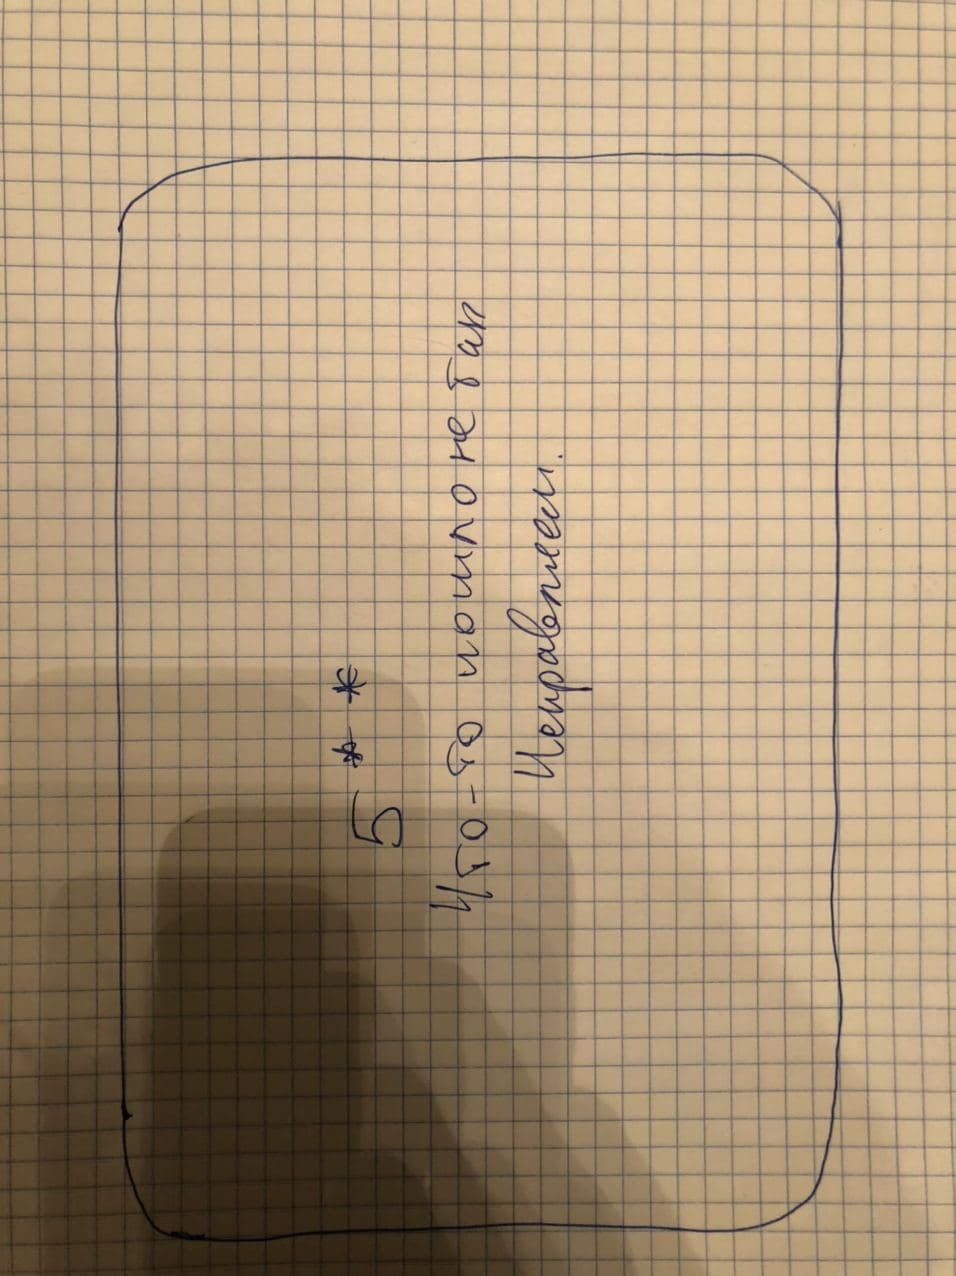 5**
Что-то пошло не так
Исправляем.